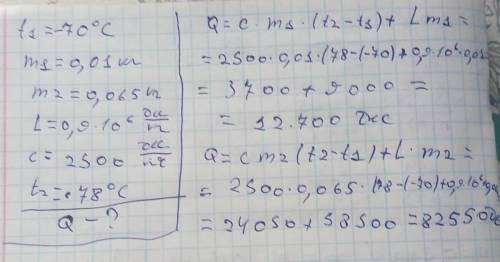 t1=-70°C
m1=0,01 кг
m2=0,065 кг
L=0,9·10⁶ Дж/кг
c=2500 Дж/кг
t2=+78°C
Q-?
Q=c·m1·(t2-t1)+Lm1=
=2500·0,01·(78-(-70)+0,9·10⁶·0,01
=3700+9000=
=12.700 Дж
Q=cm2(t2-t1)+L·m2=
=2500·0,065·(78-(-70)+0,9·10⁶
=24050+58500=82550